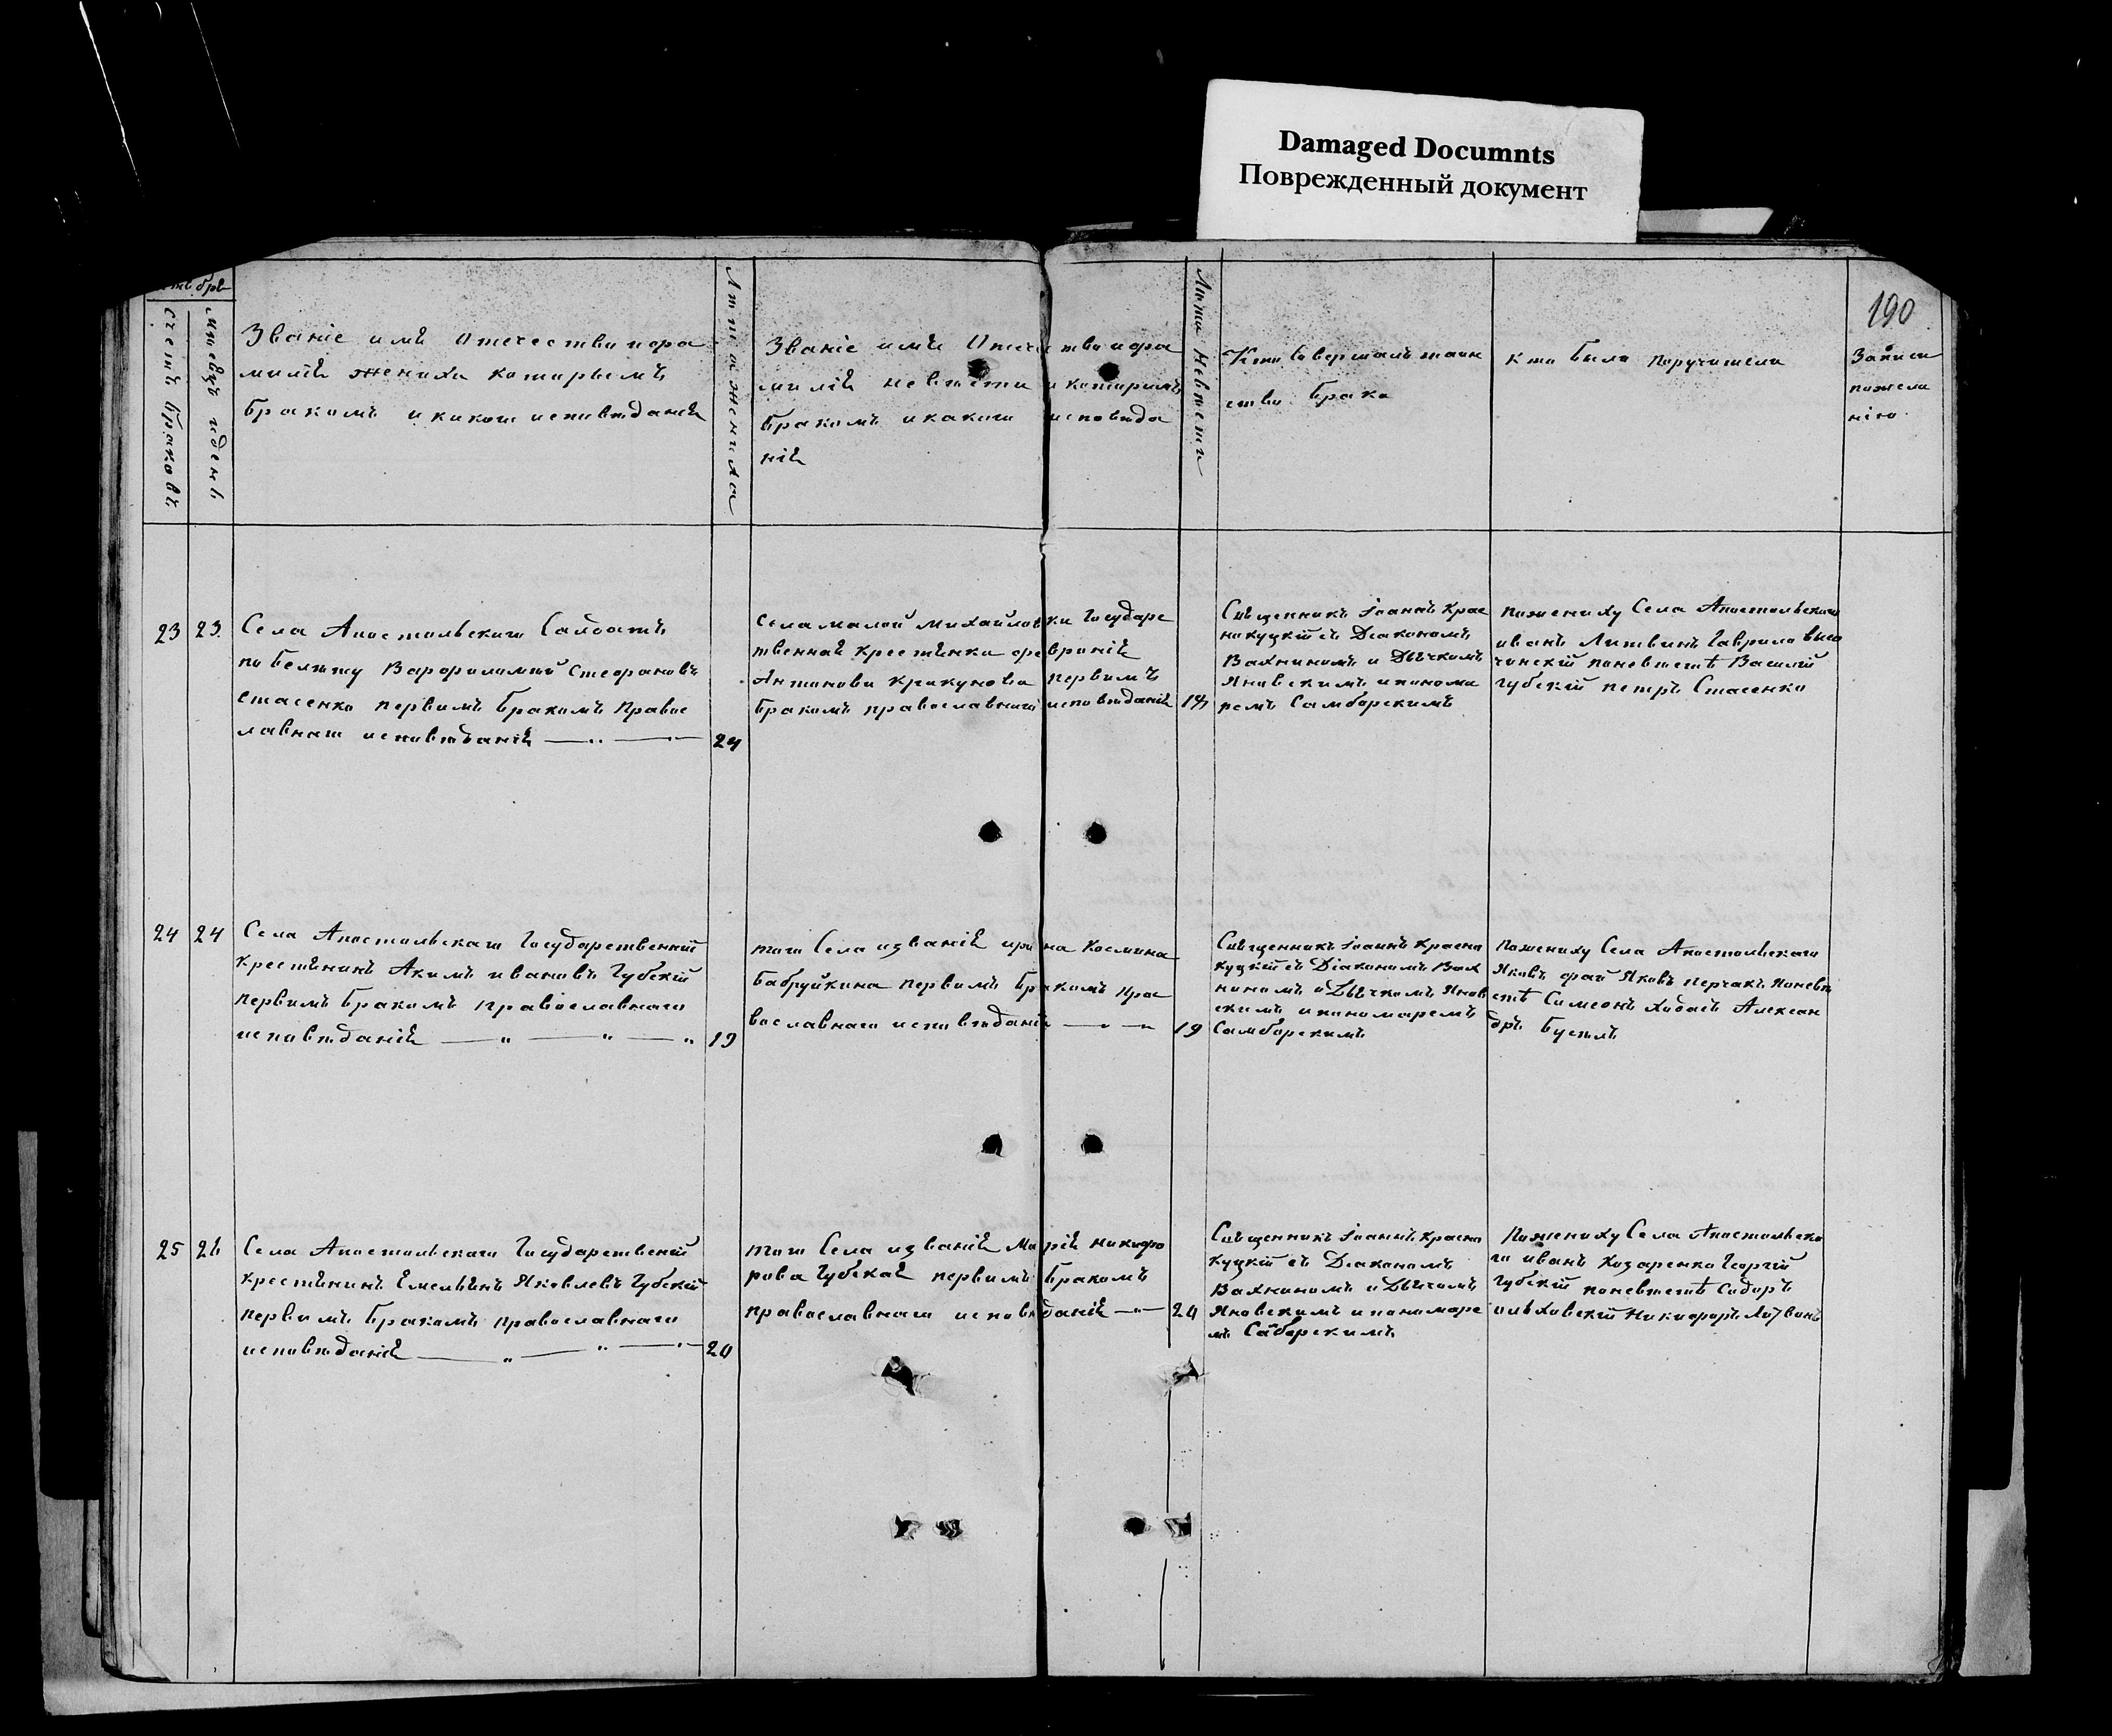 Damaged Documnts
Поврежденный документ
190
брь
Счетъ браковъ
мѣсяцъ и день
Званіе имя Отечество и фа
милія жениха которымъ
бракомъ и какого исповѣданія
Лѣта жениха
Званіе имя Отечество и фа
милія невѣсты и которымъ
бракомъ и какого исповѣда
нія
Лѣта Невѣсты
Кто совершалъ таин
ство брака
кто были поручители
Записи
по жела
нію.
23
23.
Села Апостольскаго Салдатъ
по белѣту Варфоломей Стефановъ
стасенко первымъ бракомъ Правос
лавнаго исповѣданія
24
Села малой михайловки Государс
твенная крестянка февронія
Антонова Крикунова первимъ
бракомъ православнаго исповѣданія
Священникъ Іоаннъ Крас
нокуцкій съ Діакономъ
Вахниномъ и Дьячкомъ
Яновскимъ и понома
ремъ Самборскимъ
по жениху Села Апостольскаго
иванъ Литвинъ Гаврило висо
чинскій по невѣстѣ Василій
Губскій петръ Стасенко
24
24
Села Апостольскаго Государственній
крестянинъ Акимъ ивановъ Губскій
первимъ бракомъ православнаго
исповѣданія
19
того Села и званія ирина Космина
бабруйкина первимъ бракомъ пра
вославнаго исповѣданія
19
Священникъ Іоаннъ Красно
куцкій съ Діакономъ Вах
ниномъ и Дьячкомъ Янов
скимъ и пономаремъ
Самборскимъ
по жениху Села Апостольскаго
Яковъ фай Яковъ перчакъ по невѣ
стѣ Симеонъ Ходосъ Алексан
дръ Бустъ
25
26
Села Апостольскаго Государственій
крестянинъ Емельянъ Яковлевъ Губскій
первимъ бракомъ православнаго
исповѣданія
20
того Села и званія Марія никифо
рова Губская первимъ бракомъ
православнаго исповѣданія
20
Священникъ Іоаннъ Красно
куцкій съ Діакономъ
Вахниномъ и Дьячкомъ
Яновскимъ и пономаре
мъ Самборскимъ
по жениху Села Апостольска
го иванъ Козаренко Георгій
Губскій по невѣстѣ Сидоръ
ольховскій Никифоръ